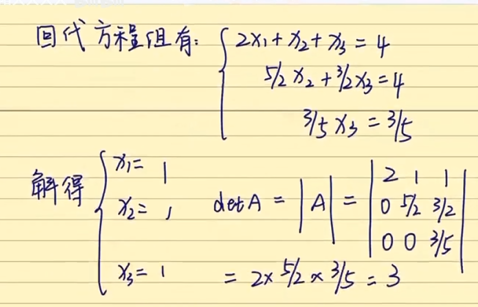 回代方程组有: { 2x₁ + x₂ + x₃ = 4
5/2 x₂ + 3/2 x₃ = 4
3/5 x₃ = 3/5
解得 { x₁ = 1
x₂ = 1
x₃ = 1
detA = |A| = | 2 1 1
0 5/2 3/2
0 0 3/5 |
= 2 × 5/2 × 3/5 = 3